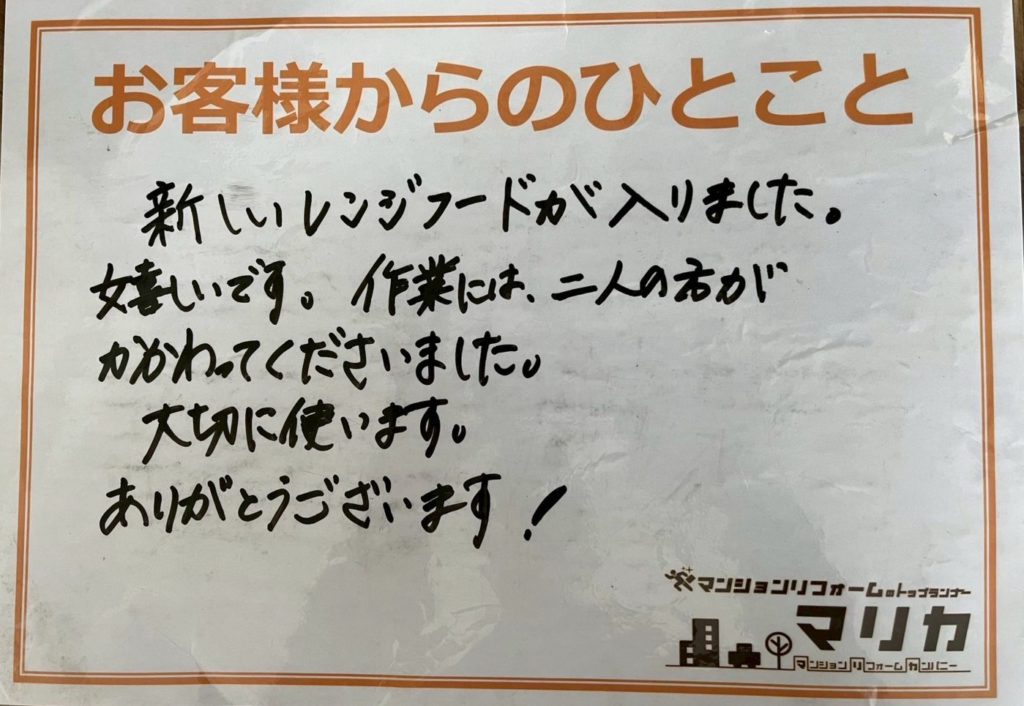 お客様からのひとこと
新しいレンジフードが入りました。
嬉しいです。作業には、二人の方が
かかわってくださいました。
大切に使います。
ありがとうございます!
マンションリフォームのトップランナー
マリカ
マンションリフォームカンパニー